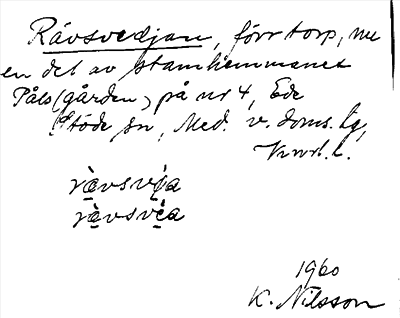 Rävsvedjan, förr torp, nu
en del av stamhemmanet
Påls(gården) på nr 4, Ede
Stöde sn, Med. v. doms. tg,
Vnrl. l.
ræ̀vsvé̩a
ræ̀vsvè̩a
1960
K. Nilsson